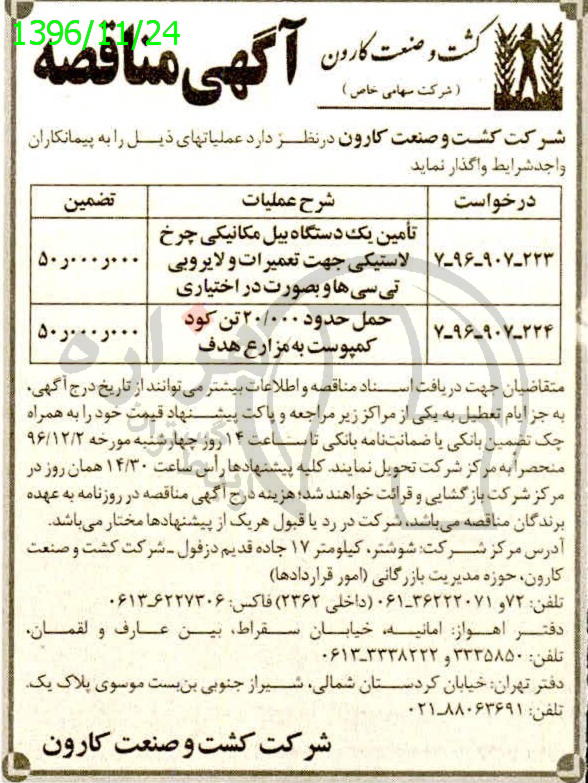 1396/11/24
کشت و صنعت کارون
(شرکت سهامی خاص)
آگهی مناقصه
شرکت کشت و صنعت کارون درنظر دارد عملیاتهای ذیل را به پیمانکاران
واجدشرایط واگذار نماید
درخواست شرح عملیات تضمین
۷ـ۹۶ـ۹۰۷ـ۲۲۳ تأمین یک دستگاه بیل مکانیکی چرخ لاستیکی جهت تعمیرات و لایروبی تی سی ها و بصورت در اختیاری ۵۰ر۰۰۰ر۰۰۰
۷ـ۹۶ـ۹۰۷ـ۲۲۴ حمل حدود ۲۰/۰۰۰ تن کود کمپوست به مزارع هدف ۵۰ر۰۰۰ر۰۰۰
متقاضیان جهت دریافت اسناد مناقصه و اطلاعات بیشتر می‌توانند از تاریخ درج آگهی،
به جز ایام تعطیل به یکی از مراکز زیر مراجعه و پاکت پیشنهاد قیمت خود را به همراه
چک تضمین بانکی یا ضمانت‌نامه بانکی تا ساعت ۱۴ روز چهارشنبه مورخه ۹۶/۱۲/۲
منحصراً به مرکز شرکت تحویل نمایند. کلیه پیشنهادها رأس ساعت ۱۴/۳۰ همان روز در
مرکز شرکت بازگشایی و قرائت خواهند شد؛ هزینه درج آگهی مناقصه در روزنامه به عهده
برندگان مناقصه می‌باشد، شرکت در رد یا قبول هریک از پیشنهادها مختار می‌باشد.
آدرس مرکز شرکت: شوشتر، کیلومتر ۱۷ جاده قدیم دزفول ـ شرکت کشت و صنعت
کارون، حوزه مدیریت بازرگانی (امور قراردادها)
تلفن: ۷۲و ۳۶۲۲۲۰۷۱ـ۰۶۱ (داخلی ۲۳۶۲) فاکس: ۶۲۲۷۳۰۶ـ۰۶۱۳
دفتر اهواز: امانیه، خیابان سقراط، بین عارف و لقمان،
تلفن: ۳۳۳۵۸۵۰ و ۳۳۳۸۲۲۲ـ۰۶۱۳
دفتر تهران: خیابان کردستان شمالی، شیراز جنوبی بن‌بست موسوی پلاک یک.
تلفن: ۸۸۰۶۳۶۹۱ـ۰۲۱
شرکت کشت و صنعت کارون